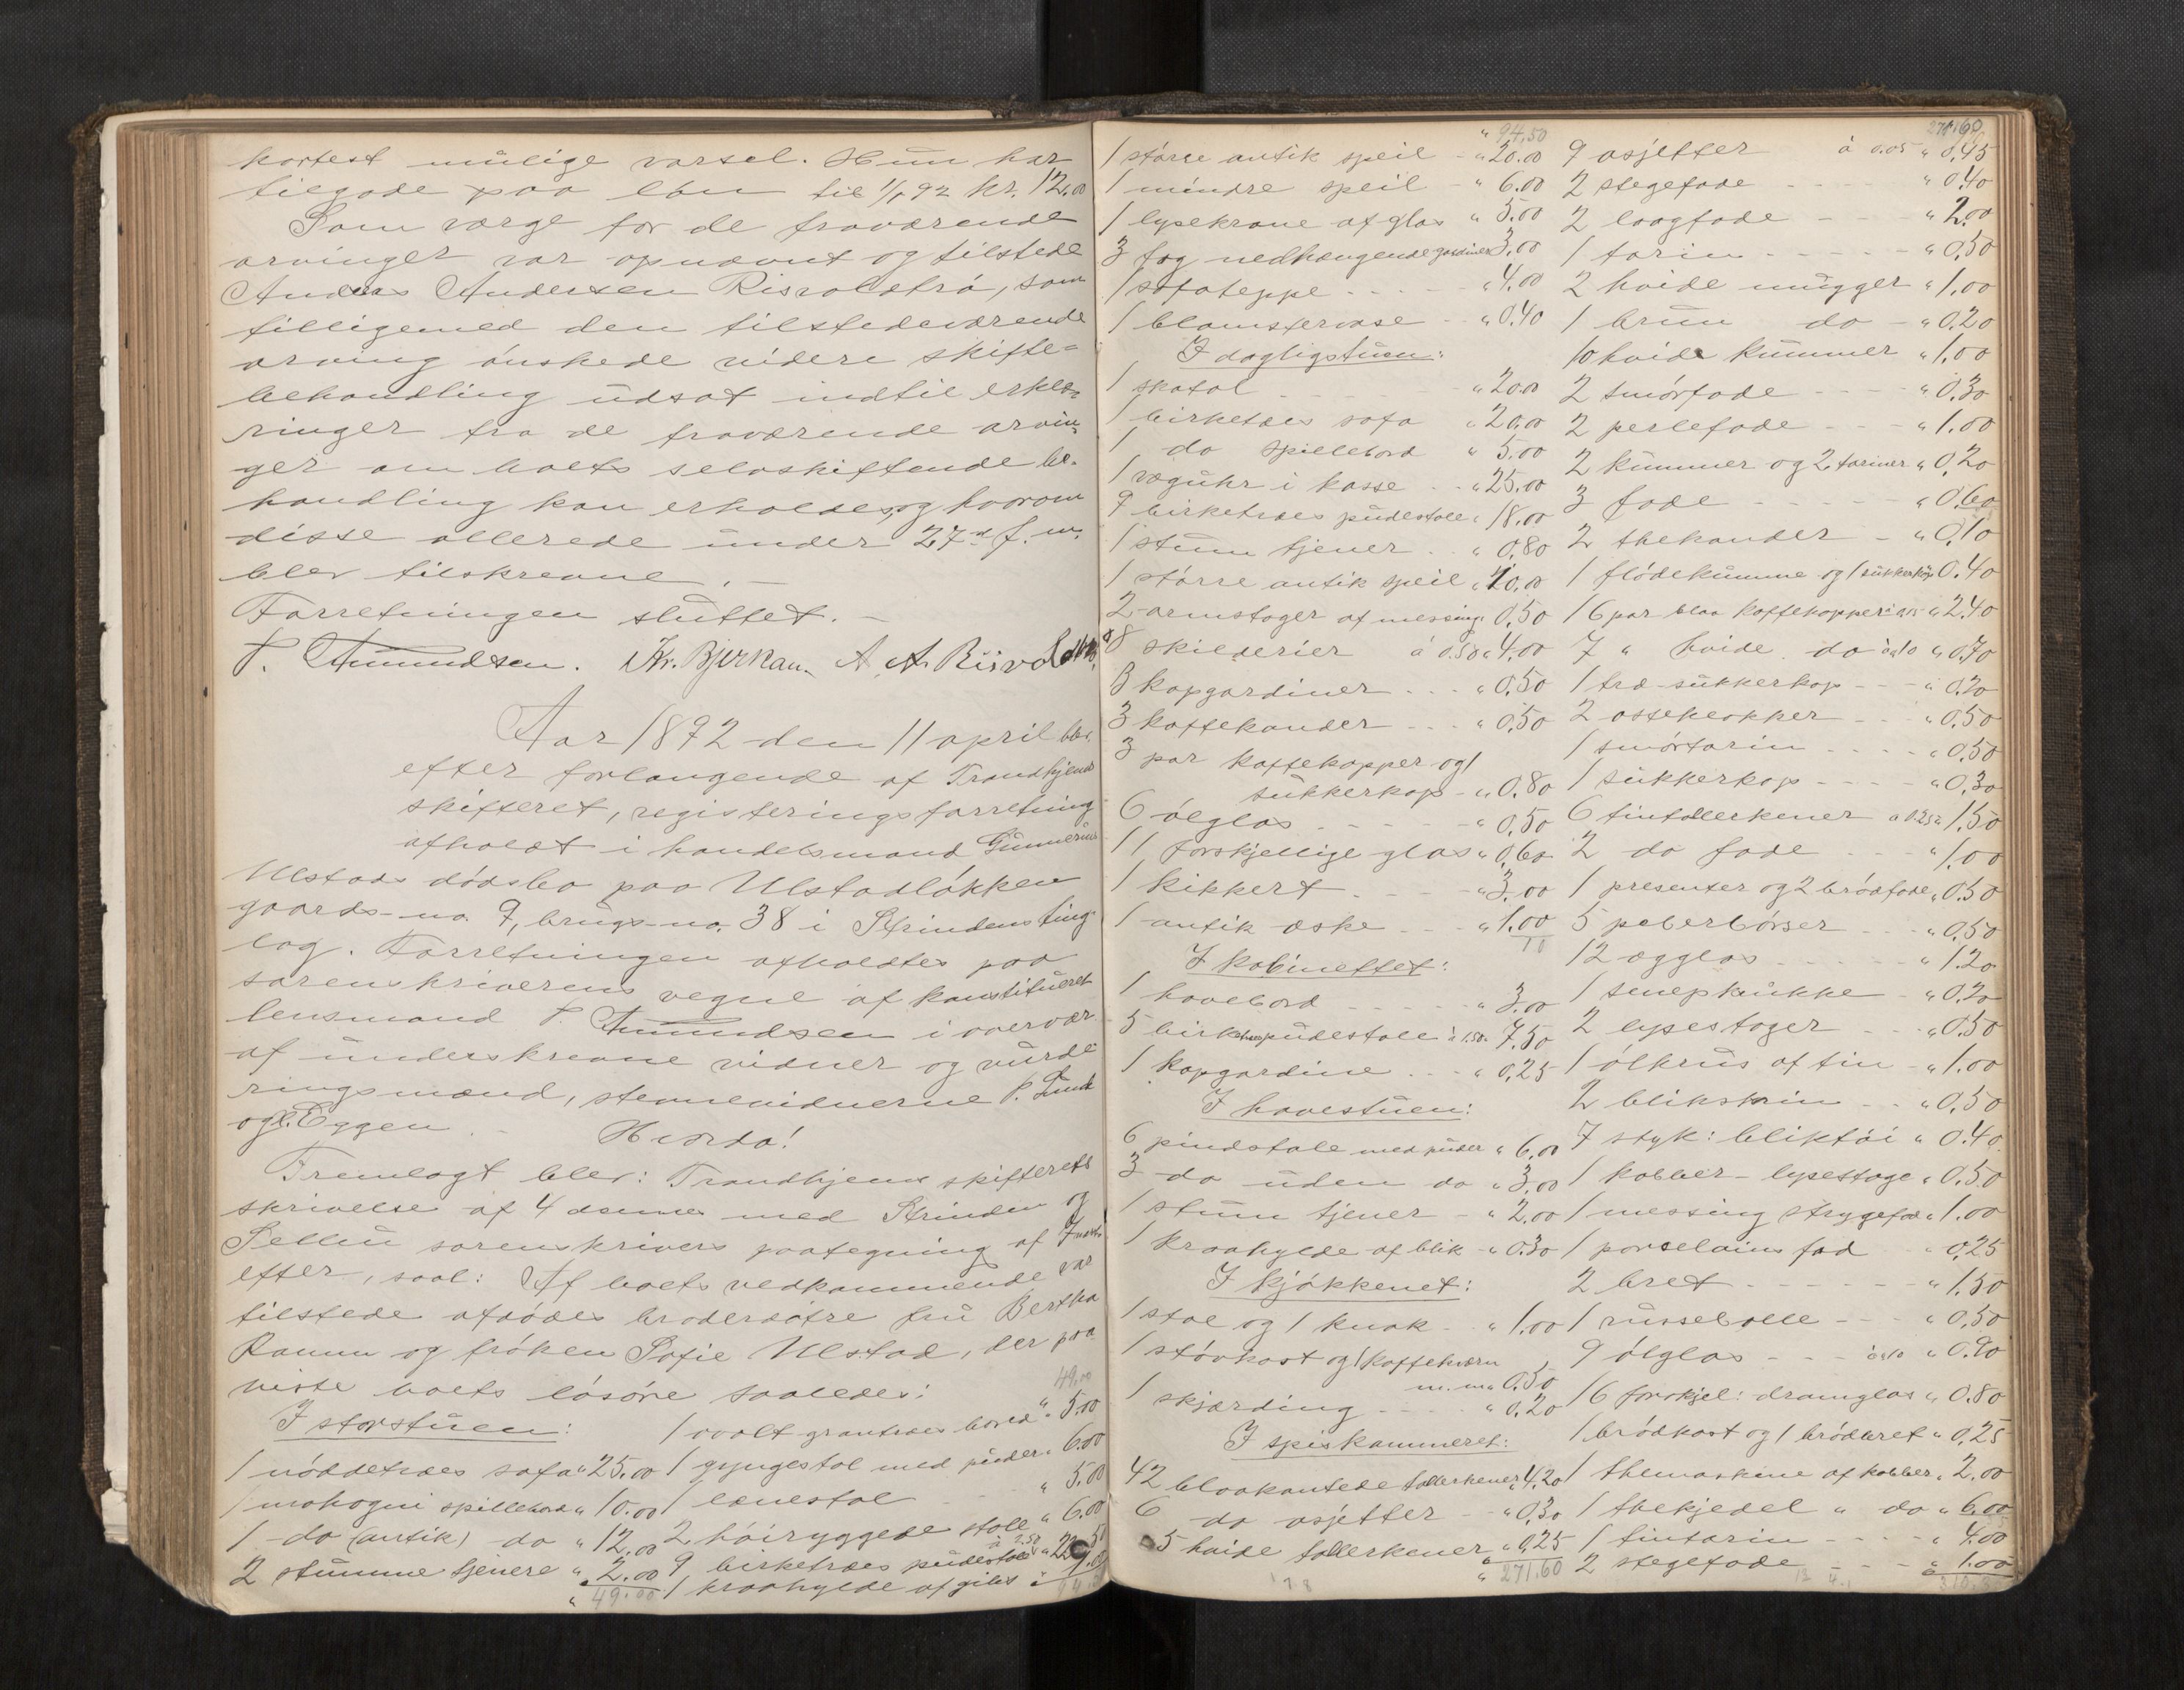 kortest mulige varsel. Hun har
tilgode paa løn til 1/1 92 kr. 12.00
Som værge for de fraværende
arvinger var opnævnt og tilstede
Anders Andersen Risvoldtrø, som
tilligemed den tilstedeværende
arving ønskede videre skifte-
behandling udsat indtil erklæ-
ringer fra de fraværende arvin-
ger om boets selvskiftende be-
handling kan erholdes, og hvorom
disse allerede under 27de f. m.
blev tilskrevne. –
Forretningen sluttet. –
P. Amundsen. Kr. Bjerkan. A. A. Risvoldtrø.
Aar 1892 den 11 april blev
efter forlangende af Trondhjems
skifteret, registreringsforretning
afholdt i handelsmand Gunnerius
Ulstads dødsbo paa Ulstadløkken
gaards-no. 9, brugs-no. 38 i Strindens ting-
lag. Forretningen afholdtes paa
sorenskriverens vegne af konstitueret
lensmand P. Amundsen i overvær
af underskrevne vidner og vurde-
ringsmænd, stevnevidnerne P. Lund
og Eggen. – Hvorda!
Fremlagt blev: Trondhjems skifterets
skrivelse af 4 dennes med Strinden og
Selbu sorenskrivers paategning af 7 næst-
efter, saal: Af boets vedkommende var
tilstede afdødes brodersøtre fru Bertha
Ramm og frøken Sofie Ulstad, der paa-
viste boets løsøre saaledes:
I storstuen:
1 nøddetræes sofa " 25.00
1 mahogni spillebord " 10.00
1 do (antik) do " 12.00
2 stumme tjenere " 2.00
" 49.00
49.00
1 ovalt grantræes bord " 5.00
1 gyngestol med puder " 6.00
1 lænestol " 5.00
2 høiryggede stole " 6.00
9 birketræes pudestole à 2.50 " 22.50
1 kraahylde af gibs " 1.00
" 94.50
1 større antik speil - " 20.00
1 mindre speil - " 6.00
1 lysekrone af glas " 5.00
3 fag nedhængende gardiner 3.00
1 sofateppe - - - - " 4.00
1 blomstervase - " 0.40
I dagligstuen:
1 skatol - - - - " 20.00
1 birketræes sofa " 20.00
1 do spillebord " 5.00
1 væguhr i kasse - - " 25.00
9 birketræes pudestole " 18.00
1 stum tjener - - " 0.80
1 større antik speil " 10.00
2 armstager af messing " 0.50
8 skilderier à 0.50 " 4.00
3 kapgardiner - - - " 0.50
3 kaffekander - - - " 0.50
3 par kaffekopper og 1
sukkerkop - " 0.80
6 ølglas - - - - - " 0.50
11 forskjellige glas " 0.60
1 kikkert - - - - " 3.00
1 antik æske - - - " 1.00
I kabinettet:
1 havebord - - - - - " 3.00
5 birketræes pudestole à 1.50 " 7.50
1 kapgardine - - - " 0.25
I havestuen:
6 pindstole med puder " 6.00
3 do uden do " 3.00
1 stum tjener - " 2.00
1 kraahylde af blik - " 0.30
I kjøkkenet:
1 stol og 1 knak - - " 1.00
1 støvkost og 1 kaffekværn
m.m. " 0.50
1 skjærding - - - - " 0.20
I spiskammeret:
42 blaakantede tallerkener " 4.20
6 do asjetter - - " 0.30
5 hvide tallerkener " 0.25
" 271.60
271.60
9 asjetter à 0.05 " 0.45
2 stegefade - - - - " 0.40
2 laagfade - - - " 2.00
1 tarin - - - - - " 0.50
2 hvide mugger " 1.00
1 brun do - " 0.20
10 hvide kummer " 1.00
2 smørfade - - - " 0.30
2 perlefade - - - " 1.00
2 kummer og 2 tariner " 0.20
3 fade - - - - - " 0.60
2 thekander - " 0.10
1 flødekumme og 1 sukkerkop 0.40
16 par blaa kaffekopper à 0.15 " 2.40
7 " hvide do à 0.10 " 0.70
1 træ-sukkerkop - - " 0.20
2 osteklokker - - " 0.50
1 smørtarin - - - - " 0.50
1 sukkerkop - - - - " 0.30
6 tintallerkener à 0.25 " 1.50
2 do fade - - " 1.00
1 presenter og 2 brødfade " 0.50
5 peberbøsser - - - " 0.50
12 ægglas - - - - - " 1.20
1 senepkrukke - " 0.20
2 lysestager - - - " 0.50
1 ølkrus af tin - " 1.00
2 blikskrin - - " 0.50
7 styk: bliktøi " 0.40
1 kobber-lysestage " 0.50
1 messing strygefad " 1.00
1 porcelains fad " 0.25
2 bret - - - - - - " 1.50
1 russebolle - - - " 0.50
9 ølglas - - - à 0.10 " 0.90
16 forskjel: dramglas " 0.80
1 brødkost og 1 brødbret " 0.25
1 themaskine af kobber " 2.00
1 thekjedel " do " 6.00
1 tintarin - - - - " 4.00
2 stegefade - - - " 1.00